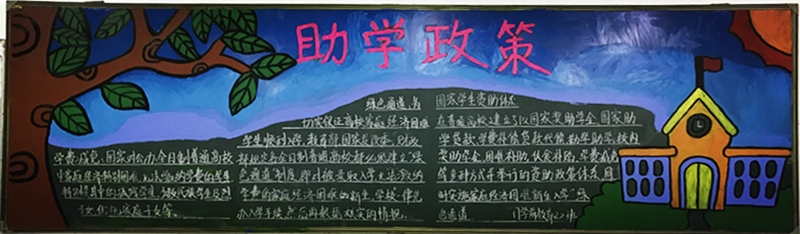 助学政策
绿色通道、各
切实保证高校家庭经济困难
学生顺利入学,教育部国家发改委、财政
部规定各全日制普通高校都必须建立“绿
色通道”制度,即对被录取入学
学费的家庭经济困难的新生,学校一律
办入学手续,然后再根据核实的情况,
学费减免:国家对公办全日制普通高校
中家庭经济特别困难,无法缴纳学费的学生
特别是其中的孤残学生、少数民族学生及烈
士子女,优抚家庭子女等,
国家学生资助体系
在普通高校建立了以国家奖助学金、国家助
学贷款、学费补偿贷款代偿、勤工助学、校内
奖助学金、困难补助、伙食补贴、学费减免
等多种方式并举的资助政策体系,同
时实施家庭经济困难新生入学“绿
色通道